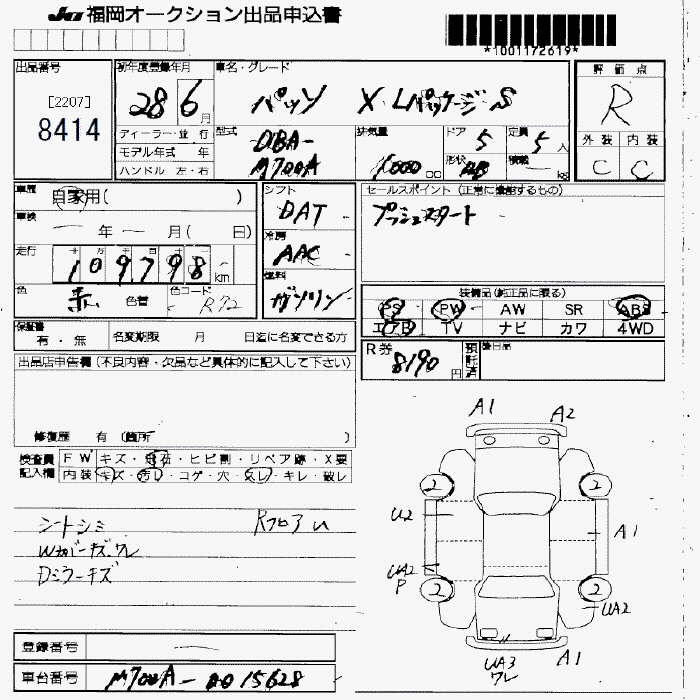 JU 福岡オークション出品申込書
*1001172619*
出品番号
[2207]
8414
初年度登録年月
28 6月
ディーラー・並行
モデル年式 年
ハンドル 左・右
車名・グレード
パッソ X Lパッケージ S
型式
DBA-
M700A
排気量
1000 cc
ドア
5
形状
定員
5 人
積載
kg
評価点
R
外装 内装
C C
車歴
自家用( )
車検
年 月( 日)
走行
109798 km
色
赤 色替
色コード
R72
シフト
DAT
冷房
AAC
燃料
ガソリン
セールスポイント (正常に機能するもの)
プッシュスタート
装備品(純正品に限る)
PS PW AW SR ABS
エアB TV ナビ カワ 4WD
保証書
有・無
名変期限 月 日迄に名変できる方
R券
8190 円
預託済
後日品
出品店申告欄(不良内容・欠品など具体的に記入して下さい)
修復歴 有 (箇所 )
検査員記入欄
FW キズ・飛石・ヒビ割・リペア跡・X要
内装 キズ・汚レ・コゲ・穴・スレ・キレ・破レ
シートシミ Rフロア U
Wカバーキズ、ワレ
Dミラーキズ
A1 A2
2 2
U2 A1
UA2
P
2 2
UA2
UA3
ワレ
A1
登録番号
車台番号
M700A-0015628